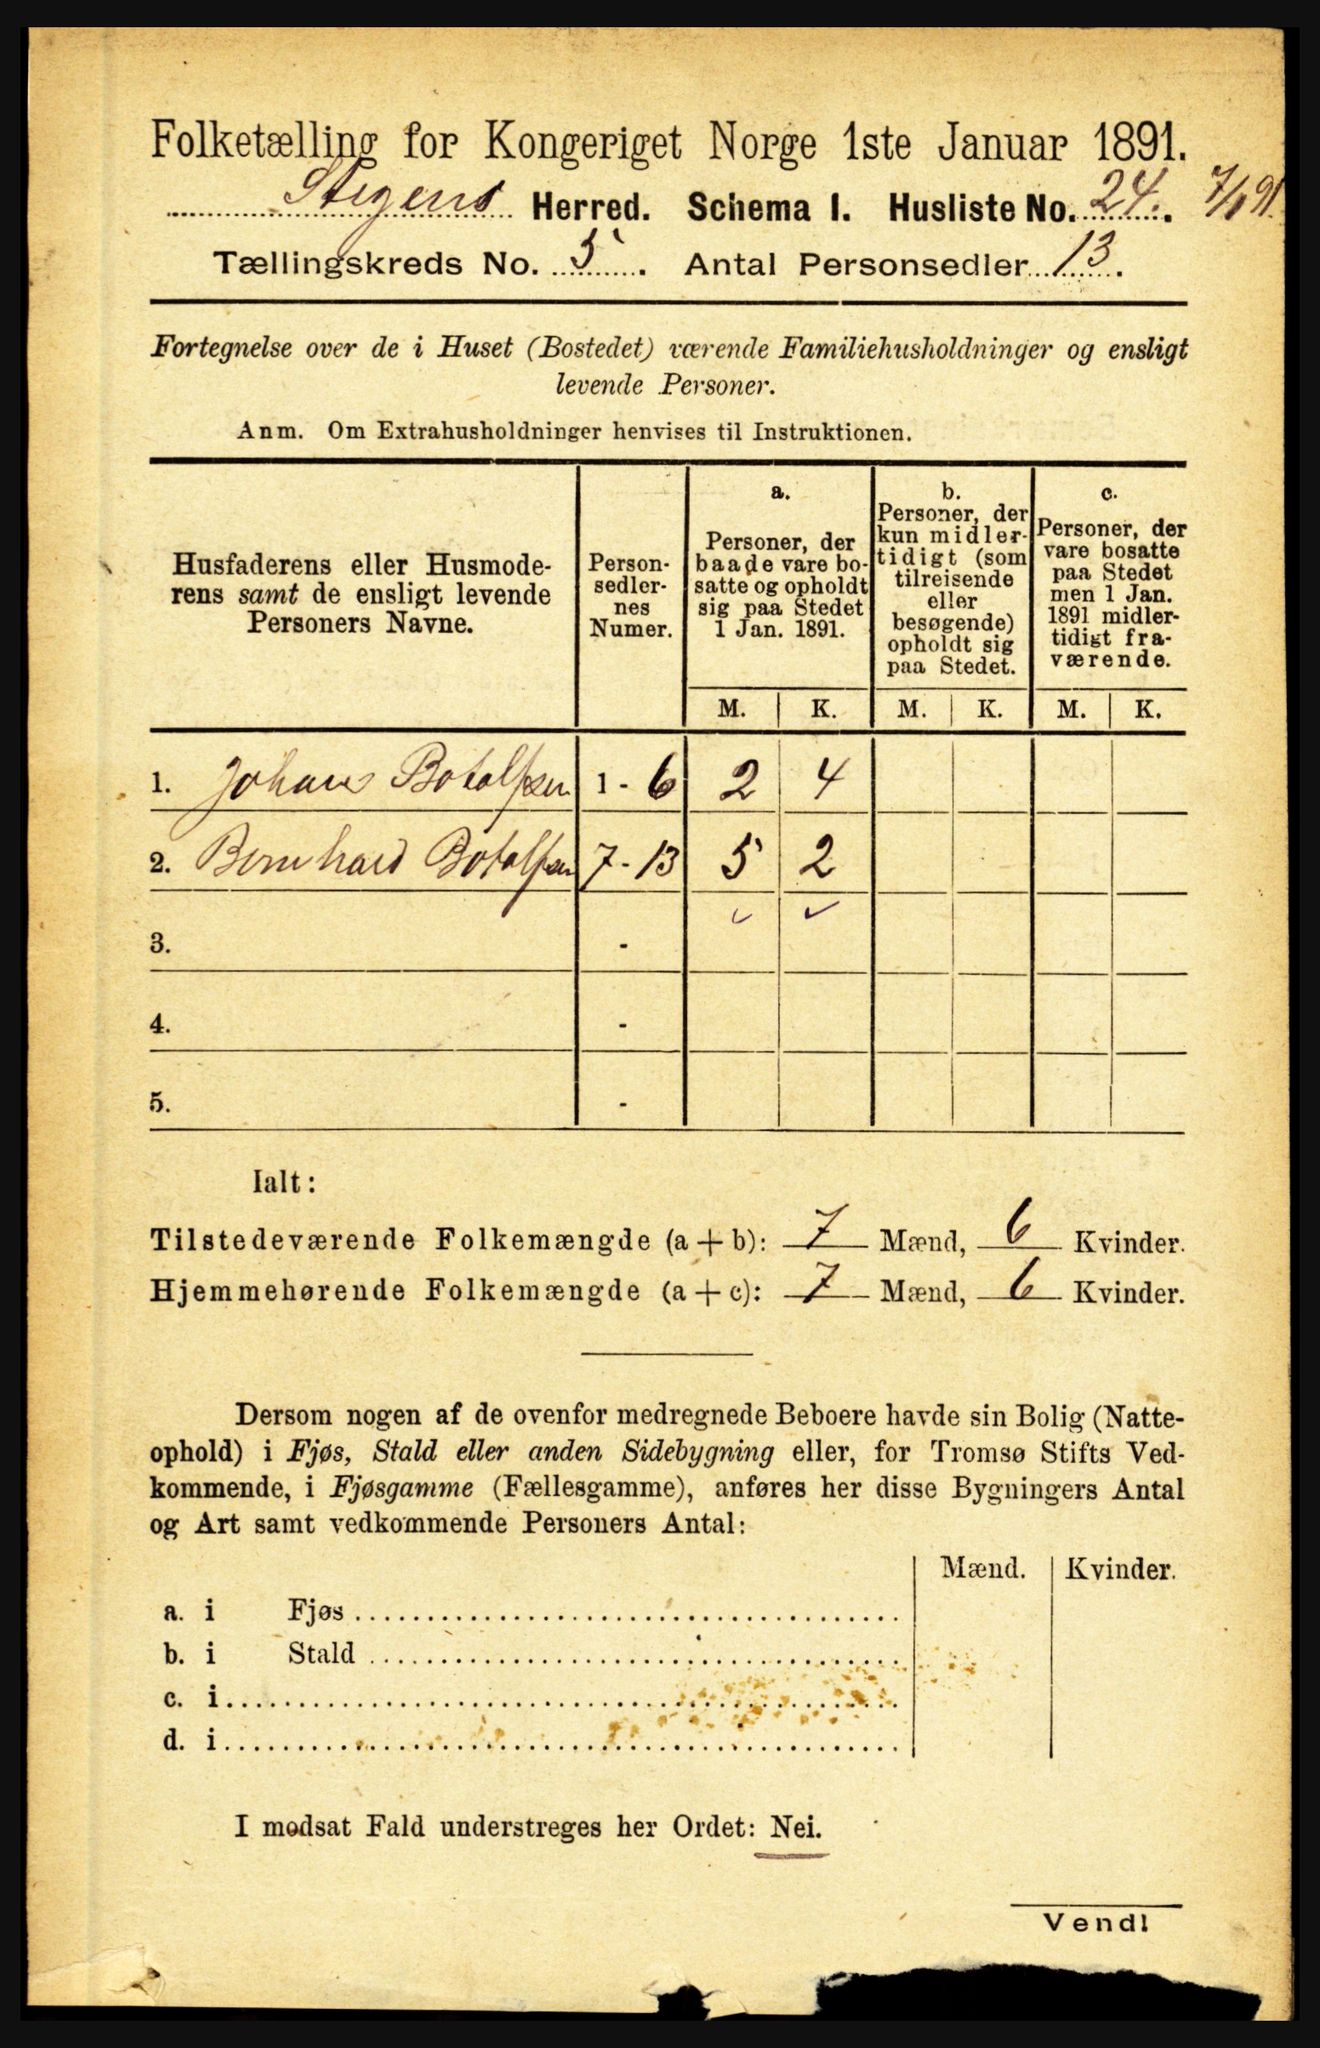 Folketælling for Kongeriget Norge 1ste Januar 1891.
Stegens Herred. Schema I. Husliste No. 24. 7/1 91.
Tællingskreds No. 5. Antal Personsedler 13.
Fortegnelse over de i Huset (Bostedet) værende Familiehusholdninger og ensligt
levende Personer.
Anm. Om Extrahusholdninger henvises til Instruktionen.
Husfaderens eller Husmode-
rens samt de ensligt levende
Personers Navne.
Person-
sedler-
nes
Numer.
a.
Personer, der
baade vare bo-
satte og opholdt
sig paa Stedet
1 Jan. 1891.
b.
Personer, der
kun midler-
tidigt (som
tilreisende
eller
besøgende)
opholdt sig
paa Stedet.
c.
Personer, der
vare bosatte
paa Stedet
men 1 Jan.
1891 midler-
tidigt fra-
værende.
M. K. M. K. M. K.
1. Johan Botolfsen 1 - 6 2 4
2. Bernhard Botolfsen 7 - 13 5 2
3. -
4. -
5. -
Ialt:
Tilstedeværende Folkemængde (a + b): 7 Mænd, 6 Kvinder.
Hjemmehørende Folkemængde (a + c): 7 Mænd, 6 Kvinder.
Dersom nogen af de ovenfor medregnede Beboere havde sin Bolig (Natte-
ophold) i Fjøs, Stald eller anden Sidebygning eller, for Tromsø Stifts Ved-
kommende, i Fjøsgamme (Fællesgamme), anføres her disse Bygningers Antal
og Art samt vedkommende Personers Antal:
Mænd. Kvinder.
a. i Fjøs
b. i Stald
c. i
d. i
I modsat Fald understreges her Ordet: Nei.
Vend!